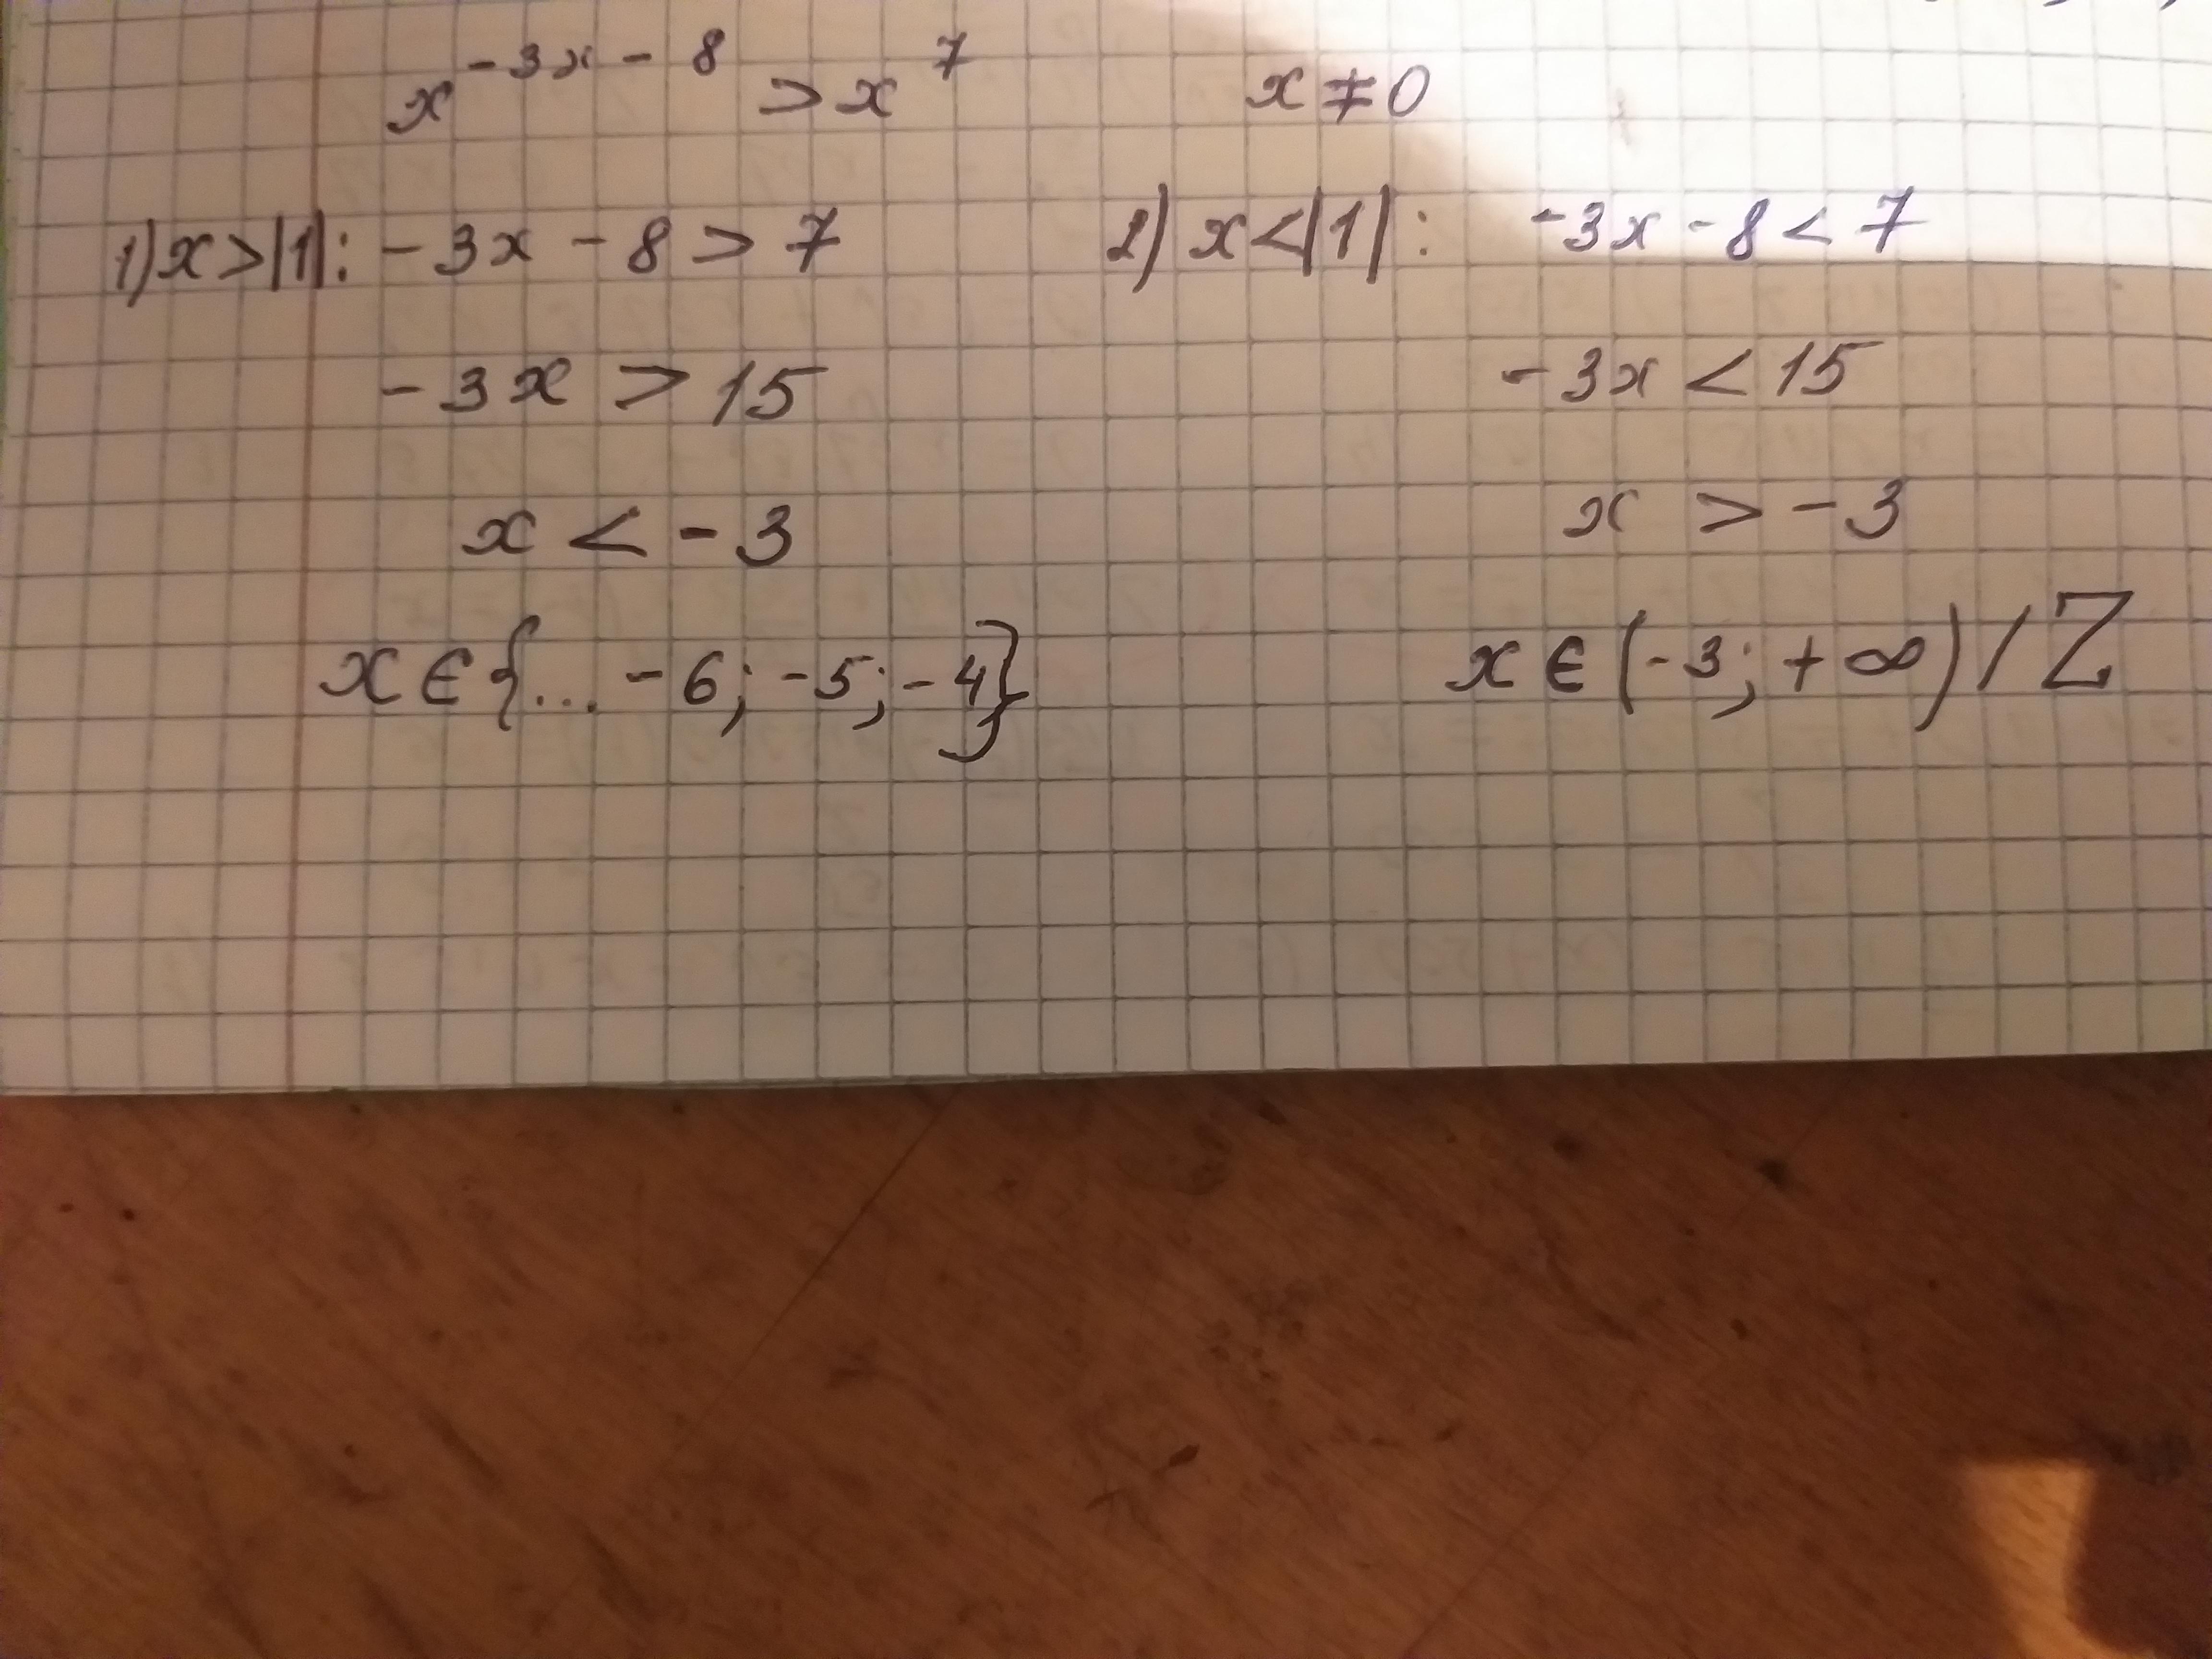 x^{-3x-8} > x^7    x ≠ 0
1) x > |1|: -3x - 8 > 7    2) x < |1|: -3x - 8 < 7
-3x > 15    -3x < 15
x < -3    x > -3
x ∈ {... -6; -5; -4}    x ∈ (-3; +∞) / Z